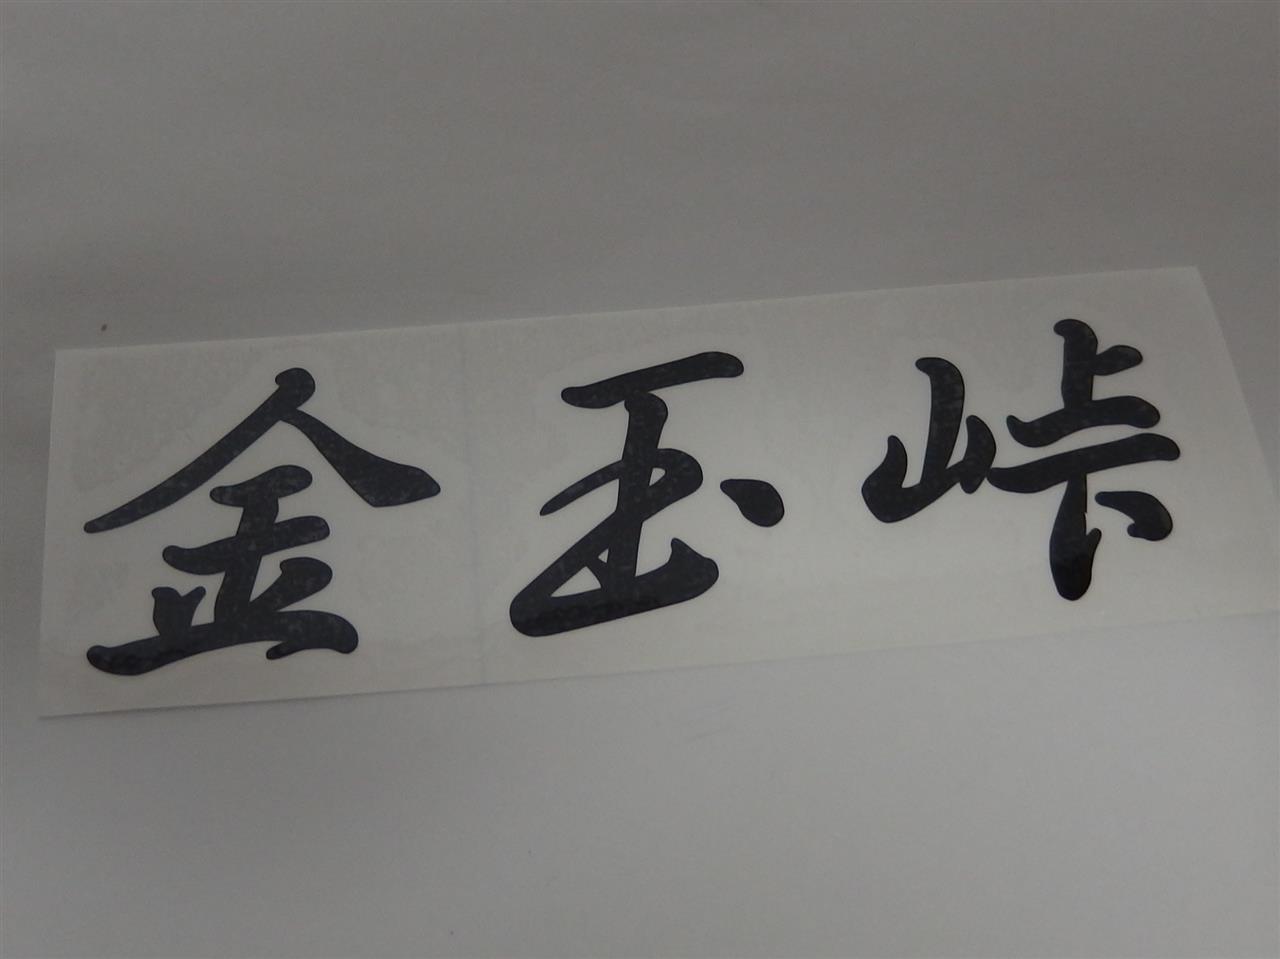 金玉峠